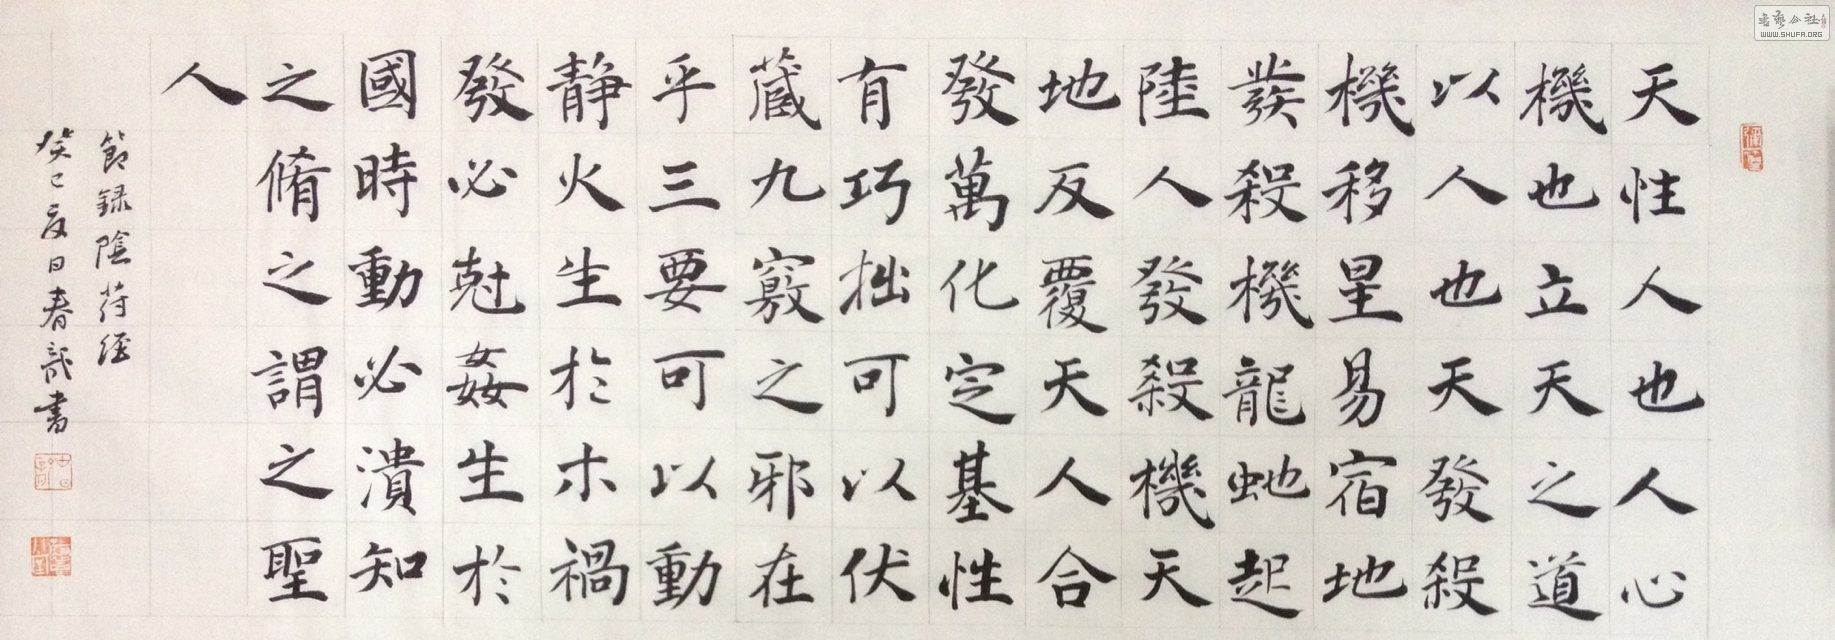 天性人也人心
機也立天之道
以人也天發殺
機移星易宿地
發殺機龍虵起
陸人發殺機天
地反覆天人合
發萬化定基性
有巧拙可以伏
藏九竅之邪在
乎三要可以動
静火生於木禍
發必尅姦生於
國時動必潰知
之脩之謂之聖
人
節録陰符經
癸巳夏日春書
書藝公社
WWW.SHUFA.ORG